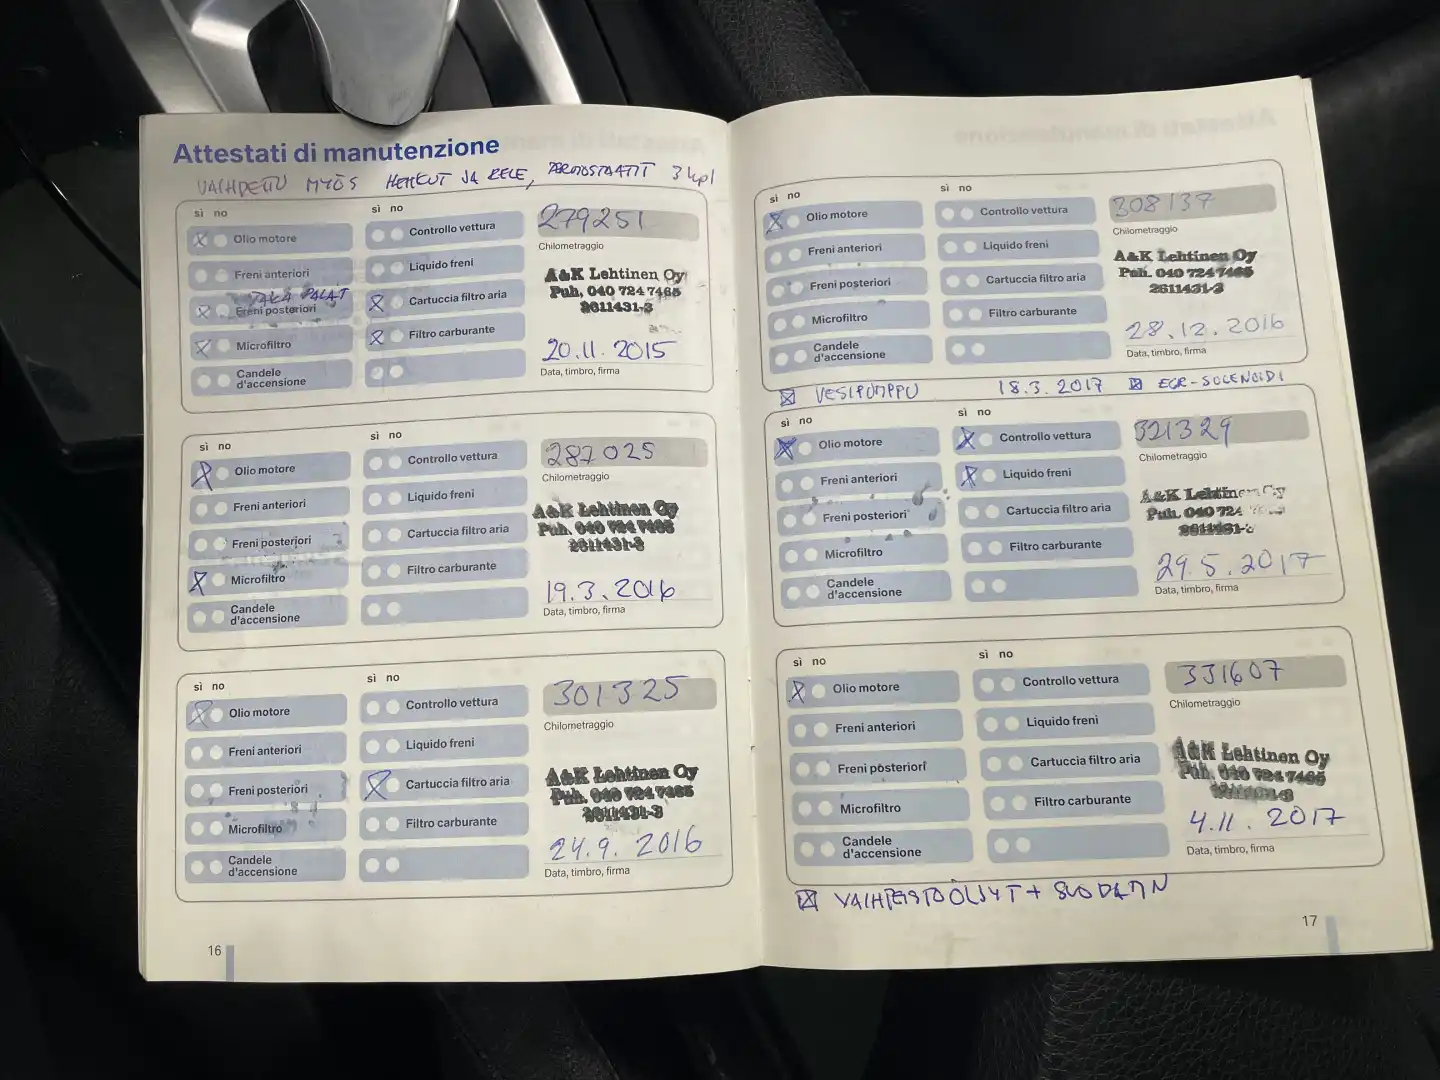 Attestati di manutenzione
VAIHDETTU MYÖS HEHKUT JA RELE, TERMOSTAATIT 3 kpl
sì no
sì no
279251
Chilometraggio
Olio motore
Controllo vettura
Freni anteriori
Liquido freni
TAKA PALAT
Freni posteriori
Cartuccia filtro aria
Microfiltro
Filtro carburante
Candele
d'accensione
A&K Lehtinen Oy
Puh. 040 724 7465
2611431-3
20.11.2015
Data, timbro, firma
sì no
sì no
287025
Chilometraggio
Olio motore
Controllo vettura
Freni anteriori
Liquido freni
Freni posteriori
Cartuccia filtro aria
Microfiltro
Filtro carburante
Candele
d'accensione
A&K Lehtinen Oy
Puh. 040 724 7465
2611431-3
19.3.2016
Data, timbro, firma
sì no
sì no
301325
Chilometraggio
Olio motore
Controllo vettura
Freni anteriori
Liquido freni
Freni posteriori
Cartuccia filtro aria
Microfiltro
Filtro carburante
Candele
d'accensione
A&K Lehtinen Oy
Puh. 040 724 7465
2611431-3
24.9.2016
Data, timbro, firma
16
sì no
sì no
308137
Chilometraggio
Olio motore
Controllo vettura
Freni anteriori
Liquido freni
Freni posteriori
Cartuccia filtro aria
Microfiltro
Filtro carburante
Candele
d'accensione
A&K Lehtinen Oy
Puh. 040 724 7465
2611431-3
28.12.2016
Data, timbro, firma
VESIPUMPPU 18.3.2017 EGR-SOLENOIDI
sì no
sì no
321329
Chilometraggio
Olio motore
Controllo vettura
Freni anteriori
Liquido freni
Freni posteriori
Cartuccia filtro aria
Microfiltro
Filtro carburante
Candele
d'accensione
A&K Lehtinen Oy
Puh. 040 724
2611431-3
29.5.2017
Data, timbro, firma
sì no
sì no
331607
Chilometraggio
Olio motore
Controllo vettura
Freni anteriori
Liquido freni
Freni posteriori
Cartuccia filtro aria
Microfiltro
Filtro carburante
Candele
d'accensione
A&K Lehtinen Oy
Puh. 040 724 7465
2611431-3
4.11.2017
Data, timbro, firma
VAIHTEISTOÖLJYT + SUODATIN
17